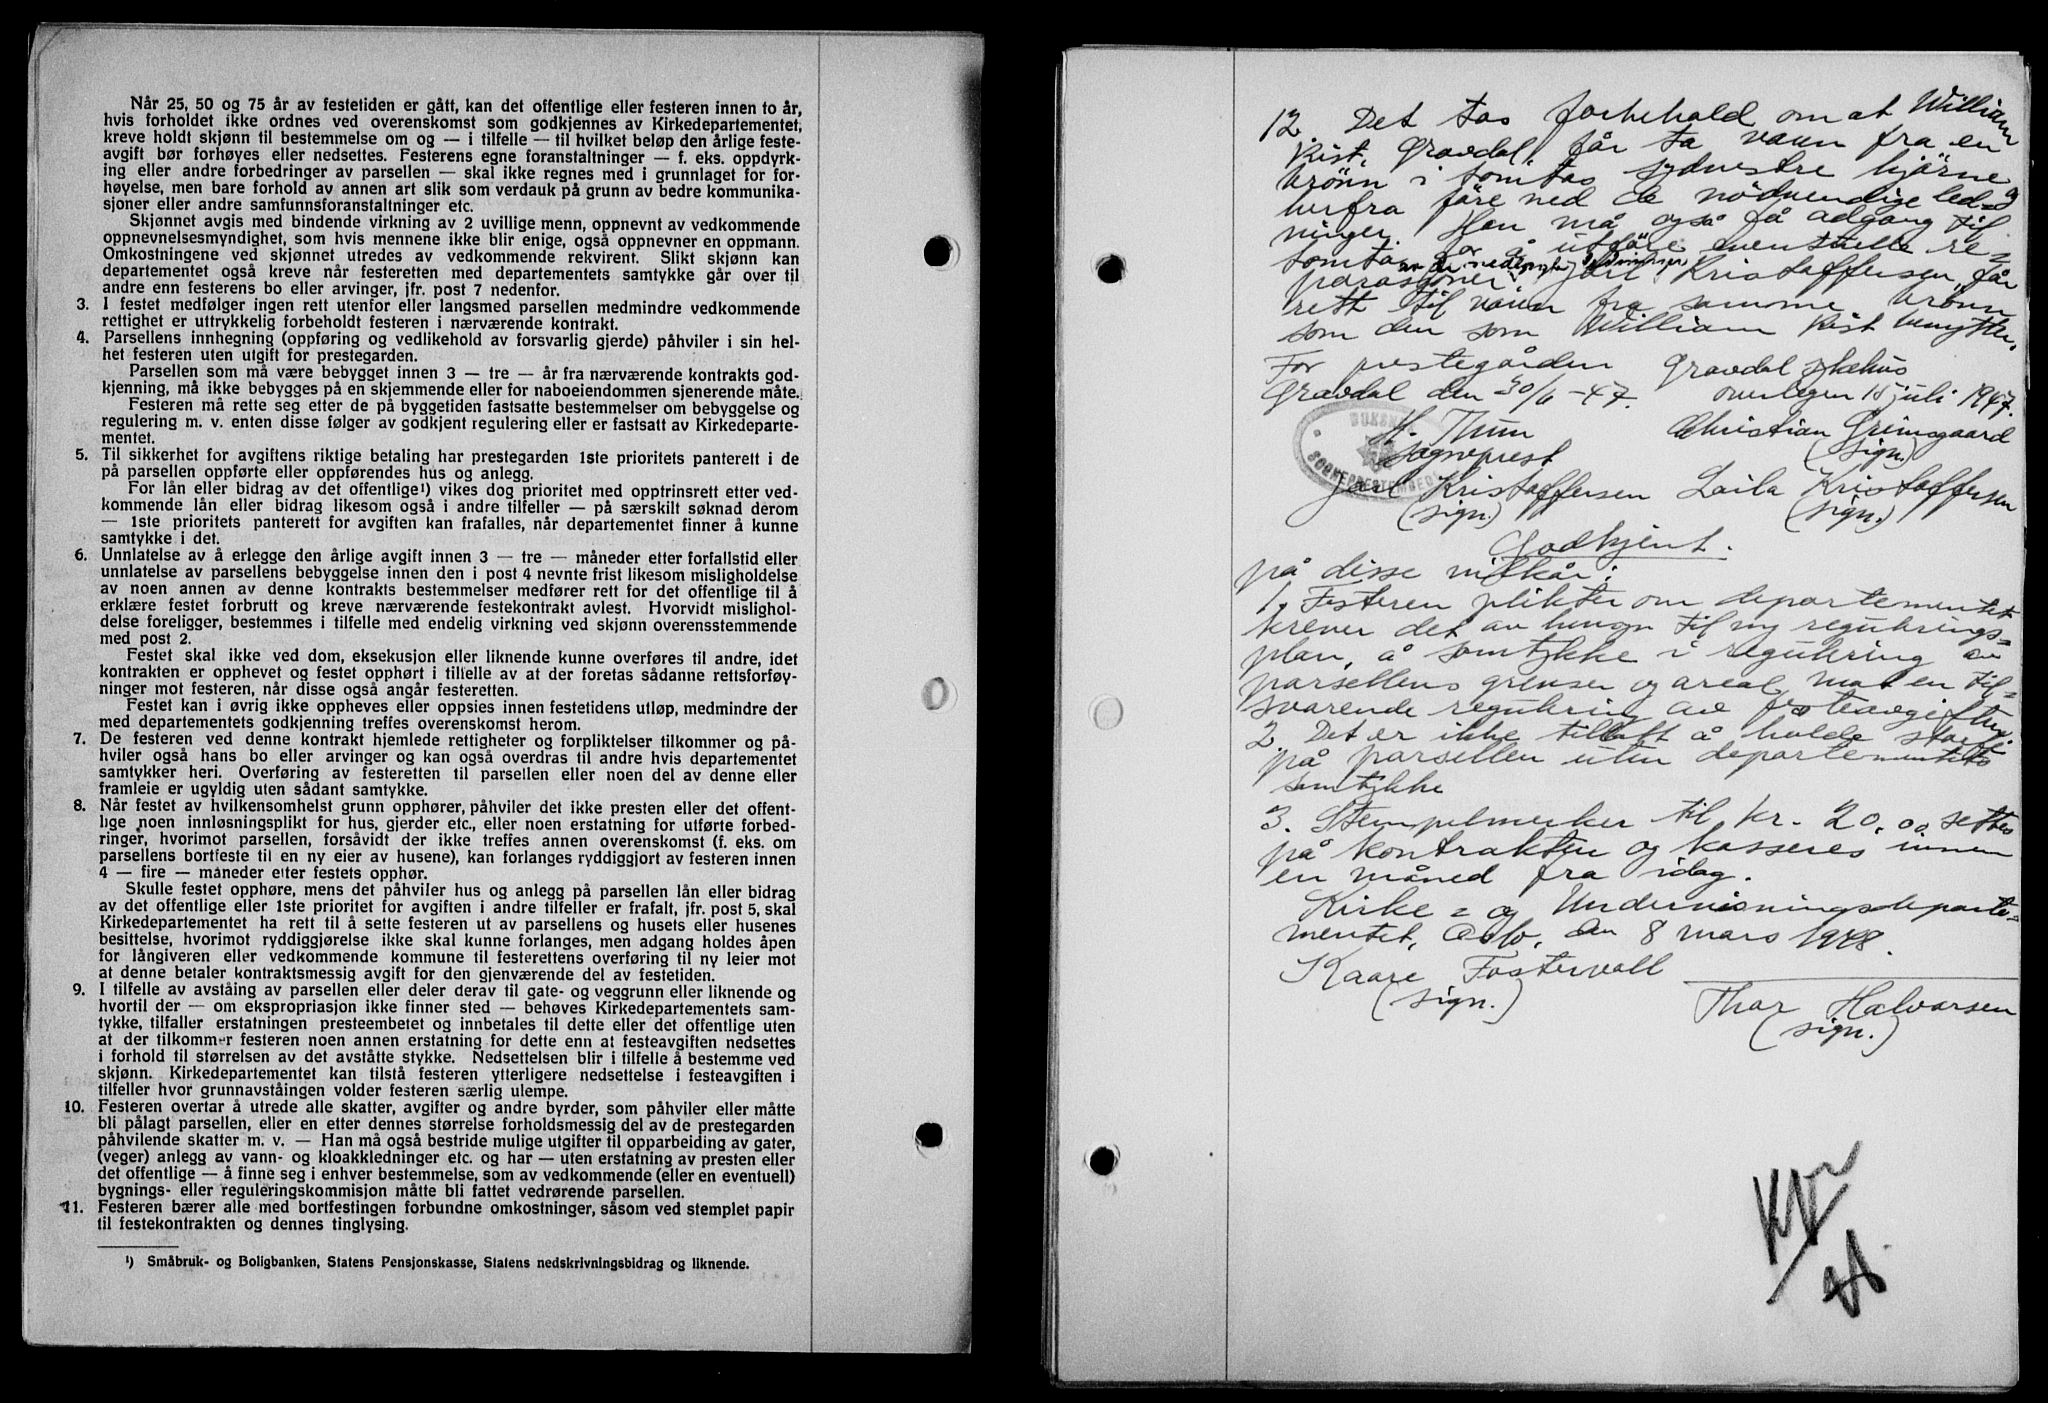 Når 25, 50 og 75 år av festetiden er gått, kan det offentlige eller festeren innen to år,
hvis forholdet ikke ordnes ved overenskomst som godkjennes av Kirkedepartementet,
kreve holdt skjønn til bestemmelse om og — i tilfelle — til hvilket beløp den årlige feste-
avgift bør forhøyes eller nedsettes. Festerens egne foranstaltninger — f. eks. oppdyrk-
ing eller andre forbedringer av parsellen — skal ikke regnes med i grunnlaget for for-
høyelse, men bare forhold av annen art slik som verdauk på grunn av bedre kommunika-
sjoner eller andre samfunnsforanstaltninger etc.
Skjønnet avgis med bindende virkning av 2 uvillige menn, oppnevnt av vedkommende
oppnevnelsesmyndighet, som hvis mennene ikke blir enige, også oppnevner en oppmann.
Omkostningene ved skjønnet utredes av vedkommende rekvirent. Slikt skjønn kan
departementet også kreve når festeretten med departementets samtykke går over til
andre enn festerens bo eller arvinger, jfr. post 7 nedenfor.
3. I festet medfølger ingen rett utenfor eller langsmed parsellen medmindre vedkommende
rettighet er uttrykkelig forbeholdt festeren i nærværende kontrakt.
4. Parsellens innhegning (oppføring og vedlikehold av forsvarlig gjerde) påhviler i sin hel-
het festeren uten utgift for prestegarden.
Parsellen som må være bebygget innen 3 — tre — år fra nærværende kontrakts god-
kjenning, må ikke bebygges på en skjemmende eller for naboeiendommen sjenerende måte.
Festeren må rette seg etter de på byggetiden fastsatte bestemmelser om bebyggelse og
regulering m. v. enten disse følger av godkjent regulering eller er fastsatt av Kirkedeparte-
mentet.
5. Til sikkerhet for avgiftens riktige betaling har prestegarden 1ste prioritets panterett i de
på parsellen oppførte eller oppførendes hus og anlegg.
For lån eller bidrag av det offentlige¹) vikes dog prioritet med opptrinsrett etter ved-
kommende lån eller bidrag likesom også i andre tilfeller — på særskilt søknad derom
— 1ste prioritets panterett for avgiften kan frafalles, når departementet finner å kunne
samtykke i det.
6. Unnlatelse av å erlegge den årlige avgift innen 3 — tre — måneder etter forfallstid eller
unnlatelse av parsellens bebyggelse innen den i post 4 nevnte frist likesom misligholdelse
av noen annen av denne kontrakts bestemmelser medfører rett for det offentlige til å
erklære festet forbrutt og kreve nærværende festekontrakt avlest. Hvorvidt mislighol-
delse foreligger, bestemmes i tilfelle med endelig virkning ved skjønn overensstemmende
med post 2.
Festet skal ikke ved dom, eksekusjon eller liknende kunne overføres til andre, idet
kontrakten er opphevet og festet opphørt i tillelle av at der foretas sådanne rettsforføy-
ninger mot festeren, når disse også angår festeretten.
Festet kan i øvrig ikke oppheves eller oppsies innen festetidens utløp, medmindre der
med departementets godkjenning treffes overenskomst herom.
7. De festeren ved denne kontrakt hjemlede rettigheter og forpliktelser tilkommer og på-
hviler også hans bo eller arvinger og kan også overdras til andre hvis departementet
samtykker heri. Overføring av festeretten til parsellen eller noen del av denne eller
framleie er ugyldig uten sådant samtykke.
8. Når festet av hvilkensomhelst grunn opphører, påhviler det ikke presten eller det offent-
lige noen innløsningsplikt for hus, gjerder etc., eller noen erstatning for utførte forbed-
ringer, hvorimot parsellen, forsåvidt der ikke treffes annen overenskomst (f. eks. om
parsellens bortfeste til en ny eier av husene), kan forlanges ryddiggjort av festeren innen
4 — fire — måneder etter festets opphør.
Skulle festet opphøre, mens det påhviler hus og anlegg på parsellen lån eller bidrag
av det offentlige eller 1ste prioritet for avgiften i andre tilfeller er frafalt, jfr. post 5, skal
Kirkedepartementet ha rett til å sette festeren ut av parsellens og husets eller husenes
besittelse, hvorimot ryddiggjørelse ikke skal kunne forlanges, men adgang holdes åpen
for långiveren eller vedkommende kommune til festerettens overføring til ny leier mot
at denne betaler kontraktsmessig avgift for den gjenværende del av festetiden.
9. I tilfelle av avståing av parsellen eller deler derav til gate- og veggrunn eller liknende og
hvortil der — om ekspropriasjon ikke finner sted — behøves Kirkedepartementets sam-
tykke, tilfaller erstatningen presteembetet og innbetales til dette eller det offentlige uten
at der tilkommer festeren noen annen erstatning for dette enn at festeavgiften nedsettes
i forhold til størrelsen av det avståtte stykke. Nedsettelsen blir i tilfelle å bestemme ved
skjønn. Kirkedepartementet kan tilstå festeren ytterligere nedsettelse i festeavgiften i
tilfeller hvor grunnavståingen volder festeren særlig ulempe.
10. Festeren overtar å utrede alle skatter, avgifter og andre byrder, som påhviler eller måtte
bli pålagt parsellen, eller en etter dennes størrelse forholdsmessig del av de prestegarden
påhvilende skatter m. v. — Han må også bestride mulige utgifter til opparbeiding av gater,
(veger) anlegg av vann- og kloakkledninger etc. og har — uten erstatning av presten eller
det offentlige — å finne seg i enhver bestemmelse, som av vedkommende (eller en eventuell)
bygnings- eller reguleringskommisjon måtte bli fattet vedrørende parsellen.
11. Festeren bærer alle med bortfestingen forbundne omkostninger, såsom ved stemplet papir
til festekontrakten og dennes tinglysing.
¹) Småbruk- og Boligbanken, Statens Pensjonskasse, Statens nedskrivningsbidrag og liknende.
12. Det tas forbehold om at William
Kist, Gravdal, får ta vann fra en
brönn i tomtas sydvestre hjörne og
herfra före ned de nödvendige led-
ninger. Han må også få adgang til
tomta for å utföre eventuelle re-
parasjoner av de nedlagte ledninger. Jarl Kristoffersen får
rett til vann fra samme brönn
som den som William Kist benytter.
For prestegården Gravdal sykehus
Gravdal den 30/6 -47. overlegen 15 juli 1947.
H. Thun Christian Grimsgaard
Sogneprest (sign.)
BUKSNES
SOKNEPRESTEMBEDE
Jarl Kristoffersen Laila Kristoffersen
(sign.) (sign.)
Godkjent.
på disse vilkår:
1. Festeren plikter om departementet
krever det av hensyn til ny regulerings-
plan, å samtykke i regulering av
parsellens grenser og areal mot en til-
svarende regulering av festeavgiften.
2. Det er ikke tillatt å holde
på parsellen uten departementets
samtykke
3. Stempelmerker til kr. 20,00 settes
på kontrakten og kasseres innen
en måned fra idag.
Kirke- og Undervisningsdeparte-
mentet, Oslo, den 8 mars 1948.
Kaare Fostervoll
(sign.)
Thor Halvorsen
(sign.)